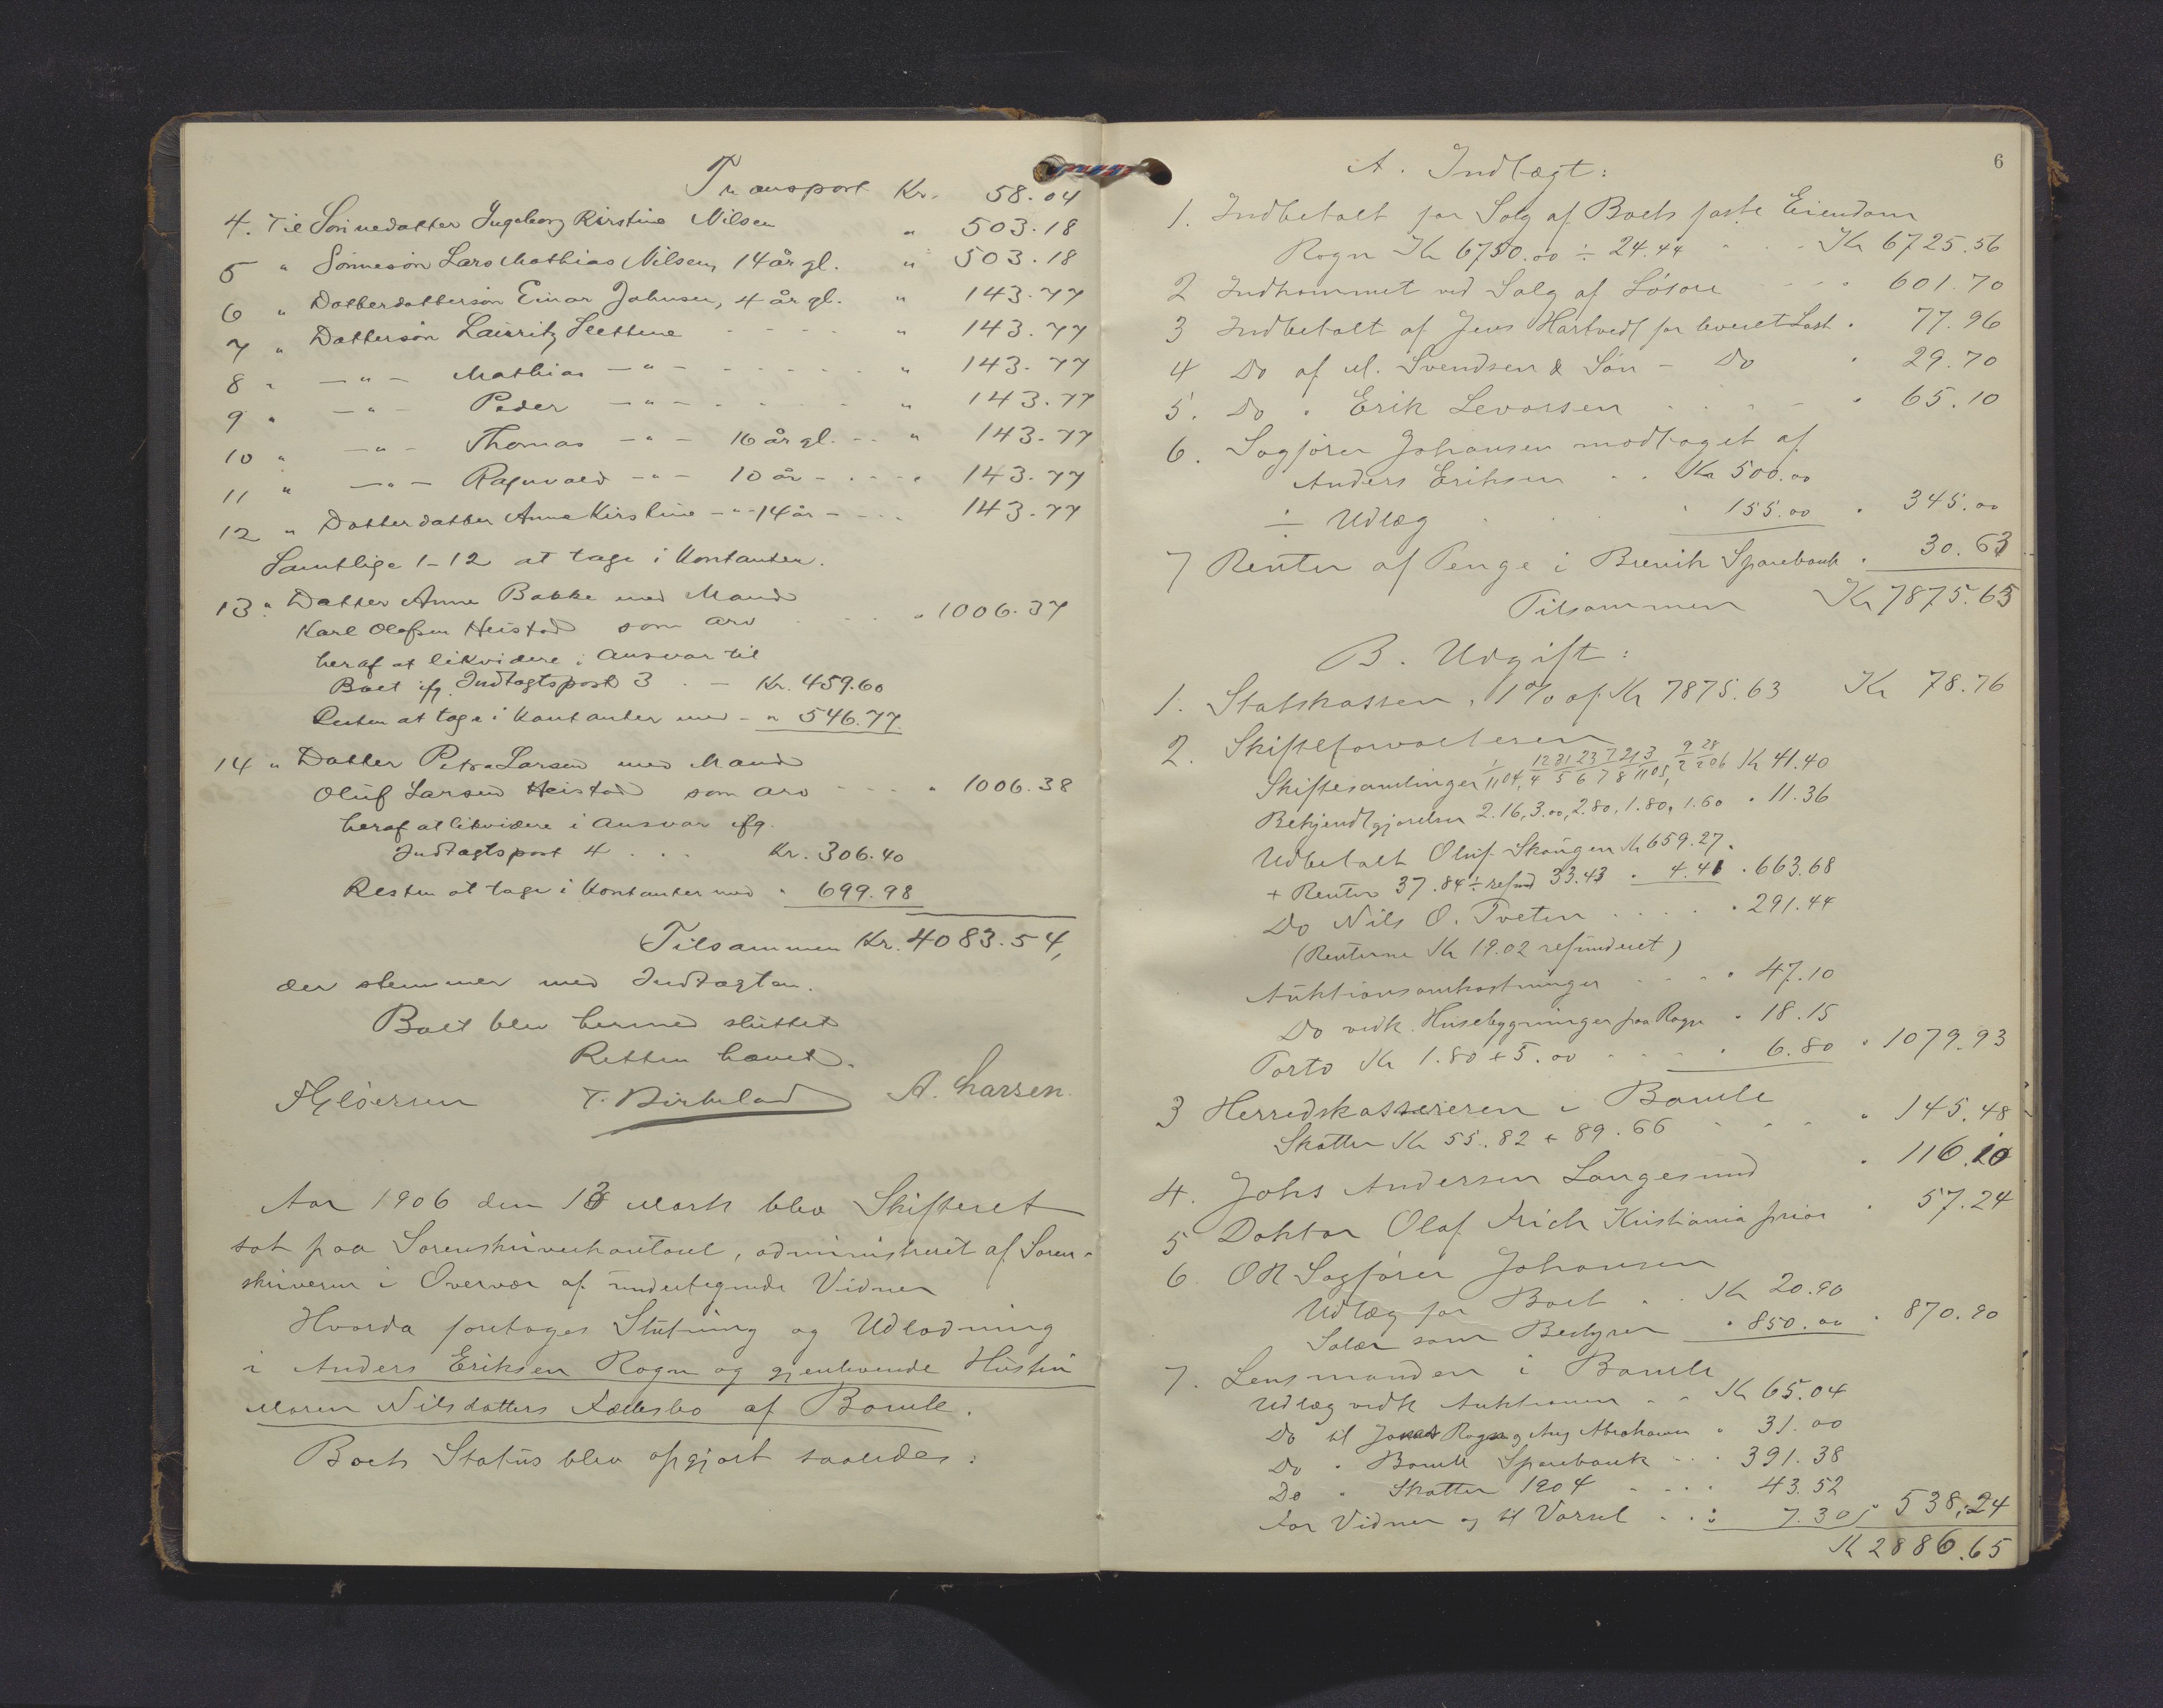 Transport Kr. 58.04
4. Til Sönnedatter Ingeborg Kirstine Nilsen " 503.18
5 " Sönnesön Lars Mathias Nilsen, 14 år gl. " 503.18
6 " Datterdattersön Einar Johnsen, 4 år gl. " 143.77
7 " Dattersön Lauritz Slettene - - - - " 143.77
8 " —"— Mathias —"— - - - - - " 143.77
9 " —"— Peder —"— - - - - - " 143.77
10 " —"— Thomas —"— 16 år gl. - - " 143.77
11 " —"— Ragnvald —"— 10 år - - - " 143.77
12 " Datterdatter Anne Kirstine —"— 14 år - - - 143.77
Samtlige 1-12 at tage i Kontanter.
13 " Datter Anne Bakke med Mand
Karl Olafsen Heistad som arv - - - " 1006.37
heraf at likvidere i Ansvar til
Boet ifg. Indtægtspost 3 . - Kr. 459.60
Resten at tage i Kontanter med - " 546.77.
14 " Datter Petra Larsen med Mand
Oluf Larsen Heistad som arv - - - " 1006.38
heraf at likvidere i Ansvar ifg.
Indtægtspost 4 . . . Kr. 306.40
Resten at tage i Kontanter med " 699.98
Tilsammen Kr. 4083.54,
der stemmer med Indtægten.
Boet blev hermed sluttet
Retten hævet.
T. Birkeland A. Larsen.
Aar 1906 den 13 Marts blev Skifteret
sat paa Sorenskriverkontoret, administreret af Soren-
skriveren i Overvær af undertegnede Vidner
Hvorda foretoges Slutning og Udlodning
i Anders Eriksen Rogn og gjenlevende Hustru
Maren Nilsdatters Fællesbo af Bamle.
Boets Status blev opgjort saaledes:
6
A. Indtægt:
1. Indbetalt for Salg af Boets faste Eiendom
Rogn Kr 6750.00 ÷ 24.44 - - - Kr 6725.56
2 Indkommet ved Salg af Lösöre - - - 601.70
3 Indbetalt af Jens Hartvedt for leveret Last " 77.96
4 Do af M. Svendsen & Sön - Do " 29.70
5. Do " Erik Levorsen - - - - " 65.10
6. Sagförer Johansen modtaget af
Anders Eriksen . . Kr 500.00
÷ Udlæg . . . " 155.00 " 345.00
7 Renter af Penge i Brevik Sparebank " 30.63
Tilsammen Kr 7875.65
B. Udgift:
1. Statskassen, 1% af Kr 7875.63 Kr 78.76
2. Skifteforvalteren
Skiftesamlinger 1/11 04, 12/4 21/5 23/6 7/7 21/8 3/11 05, 9/2 28/2 06 Kr 41.40
Bekjendtgjørelser 2.16, 3.00, 2.80, 1.80, 1.60 " 11.36
Udbetalt Oluf Skaugen Kr 659.27.
+ Renter 37.84 ÷ refund 33.43 " 4.41 " 663.68
Do Nils O. Tveten . . . . . " 291.44
(Renterne Kr 19.02 refunderet)
Auktionsomkostninger - - - " 47.10
Do vedk. Husebygninger paa Rogn " 18.15
Porto Kr 1.80 + 5.00 - - - " 6.80 " 1079.93
3 Herredskassereren i Bamle
Skatter Kr 55.82 + 89.66 - - - " 145.48
4. Johs Andersen Langesund " 116.10
5 Doktor Olaf Frich Kristiania prior " 57.24
6. OR Sagförer Johansen
Udlæg for Boet . . Kr 20.90
Salær som Bestyrer " 850.00 " 870.90
7. Lensmanden i Bamle
Udlæg vedk Auktionen - - Kr 65.04
Do til Rogn og Aug Abrahamsen " 31.00
Do " Bamle Sparebank - - " 391.38
Do " Skatter 1904 - - - - 43.52
For Vidner og til Varsel . . : 7.30 " 538.24
Kr 2886.65